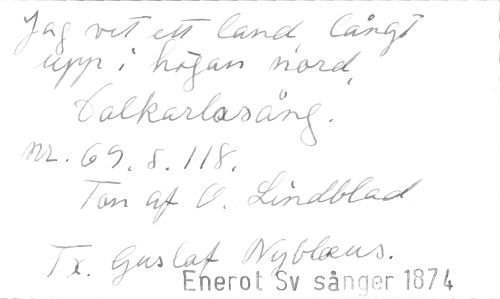 Jag vet ett land, långt
upp i högan nord,
Dalkarlasång.
nr. 69. s. 118.
Ton af O. Lindblad
Tx. Gustaf Nyblæus.
Enerot Sv sånger 1874